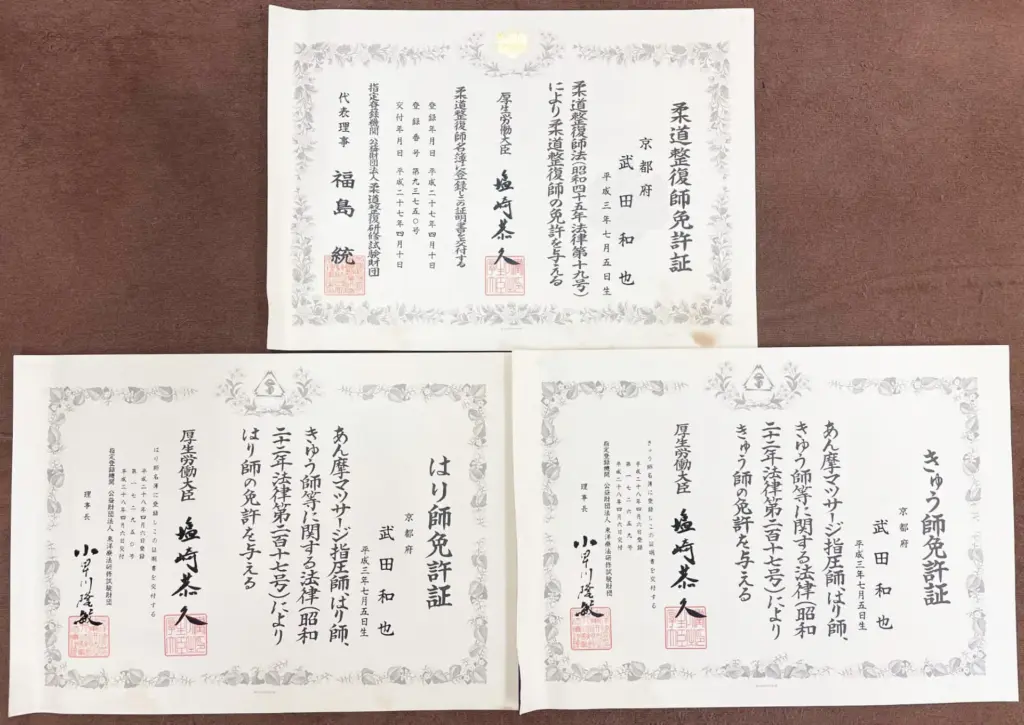 柔道整復師免許証
京都府
武田和也
平成三年七月五日生
柔道整復師法(昭和四十五年法律第十九号)
により柔道整復師の免許を与える
厚生労働大臣 塩崎恭久
柔道整復師名簿に登録しこの証明書を交付する
登録年月日 平成二十七年四月十日
登録番号 第九三七五〇号
交付年月日 平成二十七年四月十日
指定登録機関 公益財団法人柔道整復研修試験財団
代表理事 福島統
はり師免許証
京都府
武田和也
平成三年七月五日生
あん摩マツサージ指圧師、はり師、
きゆう師等に関する法律(昭和
二十二年法律第二百十七号)により
はり師の免許を与える
厚生労働大臣 塩崎恭久
はり師名簿に登録しこの証明書を交付する
平成二十八年四月六日登録
第一七二九五〇号
平成二十八年四月六日交付
指定登録機関 公益財団法人 東洋療法研修試験財団
理事長 小早川隆敏
きゆう師免許証
京都府
武田和也
平成三年七月五日生
あん摩マツサージ指圧師、はり師、
きゆう師等に関する法律(昭和
二十二年法律第二百十七号)により
きゆう師の免許を与える
厚生労働大臣 塩崎恭久
きゆう師名簿に登録しこの証明書を交付する
平成二十八年四月六日登録
第一七二六五九号
平成二十八年四月六日交付
指定登録機関 公益財団法人 東洋療法研修試験財団
理事長 小早川隆敏